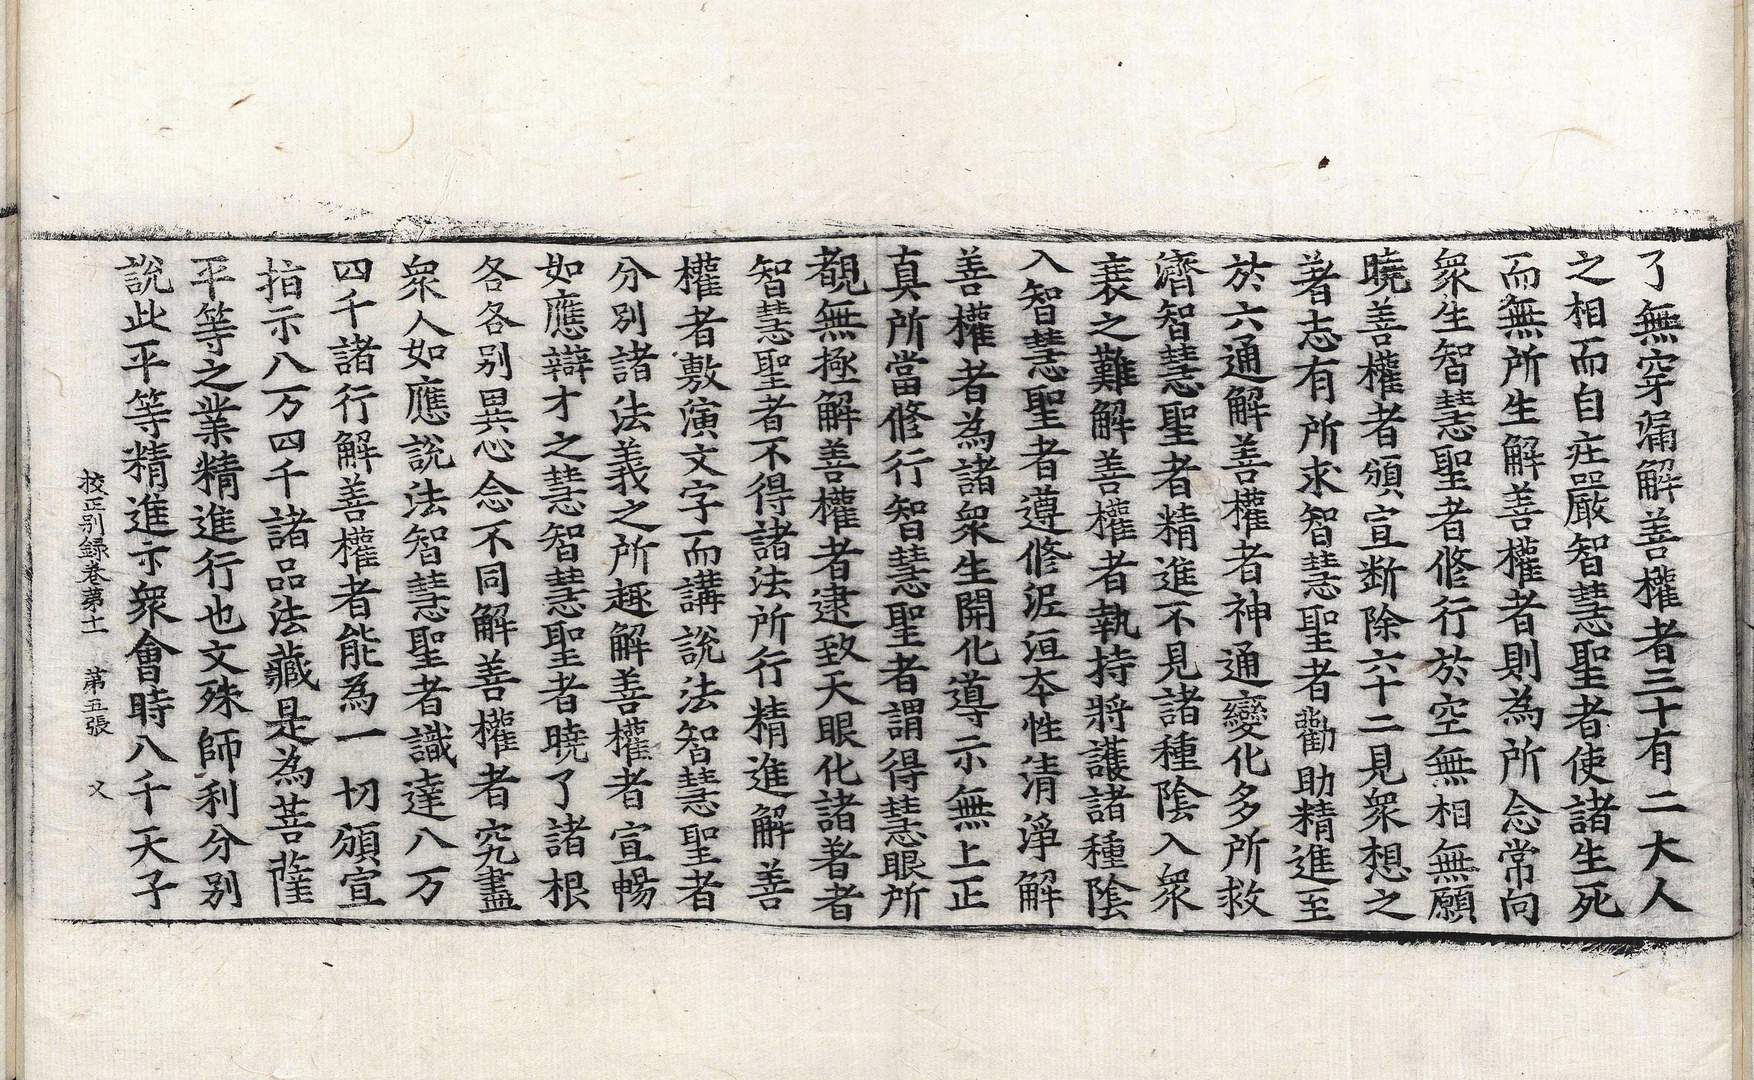 了無穿漏解善權者三十有二大人
之相而自庄嚴智慧聖者使諸生死
而無所生解善權者則為所念常向
衆生智慧聖者修行於空無相無願
曉善權者頒宣断除六十二見衆想之
著志有所求智慧聖者勸助精進至
於六通解善權者神通變化多所救
濟智慧聖者精進不見諸種陰入衆
衰之難解善權者執持將護諸種陰
入智慧聖者遵修泥洹本性清淨解
善權者為諸衆生開化導示無上正
真所當修行智慧聖者謂得慧眼所
覩無極解善權者逮致天眼化諸著者
智慧聖者不得諸法所行精進解善
權者敷演文字而講說法智慧聖者
分別諸法義之所趣解善權者宣暢
如應辯才之慧智慧聖者曉了諸根
各各别異心念不同解善權者究盡
衆人如應說法智慧聖者識達八万
四千諸行解善權者能為一切頒宣
指示八万四千諸品法藏是為菩薩
平等之業精進行也文殊師利分别
說此平等精進示衆會時八千天子
校正别録卷第十一 第五張 文